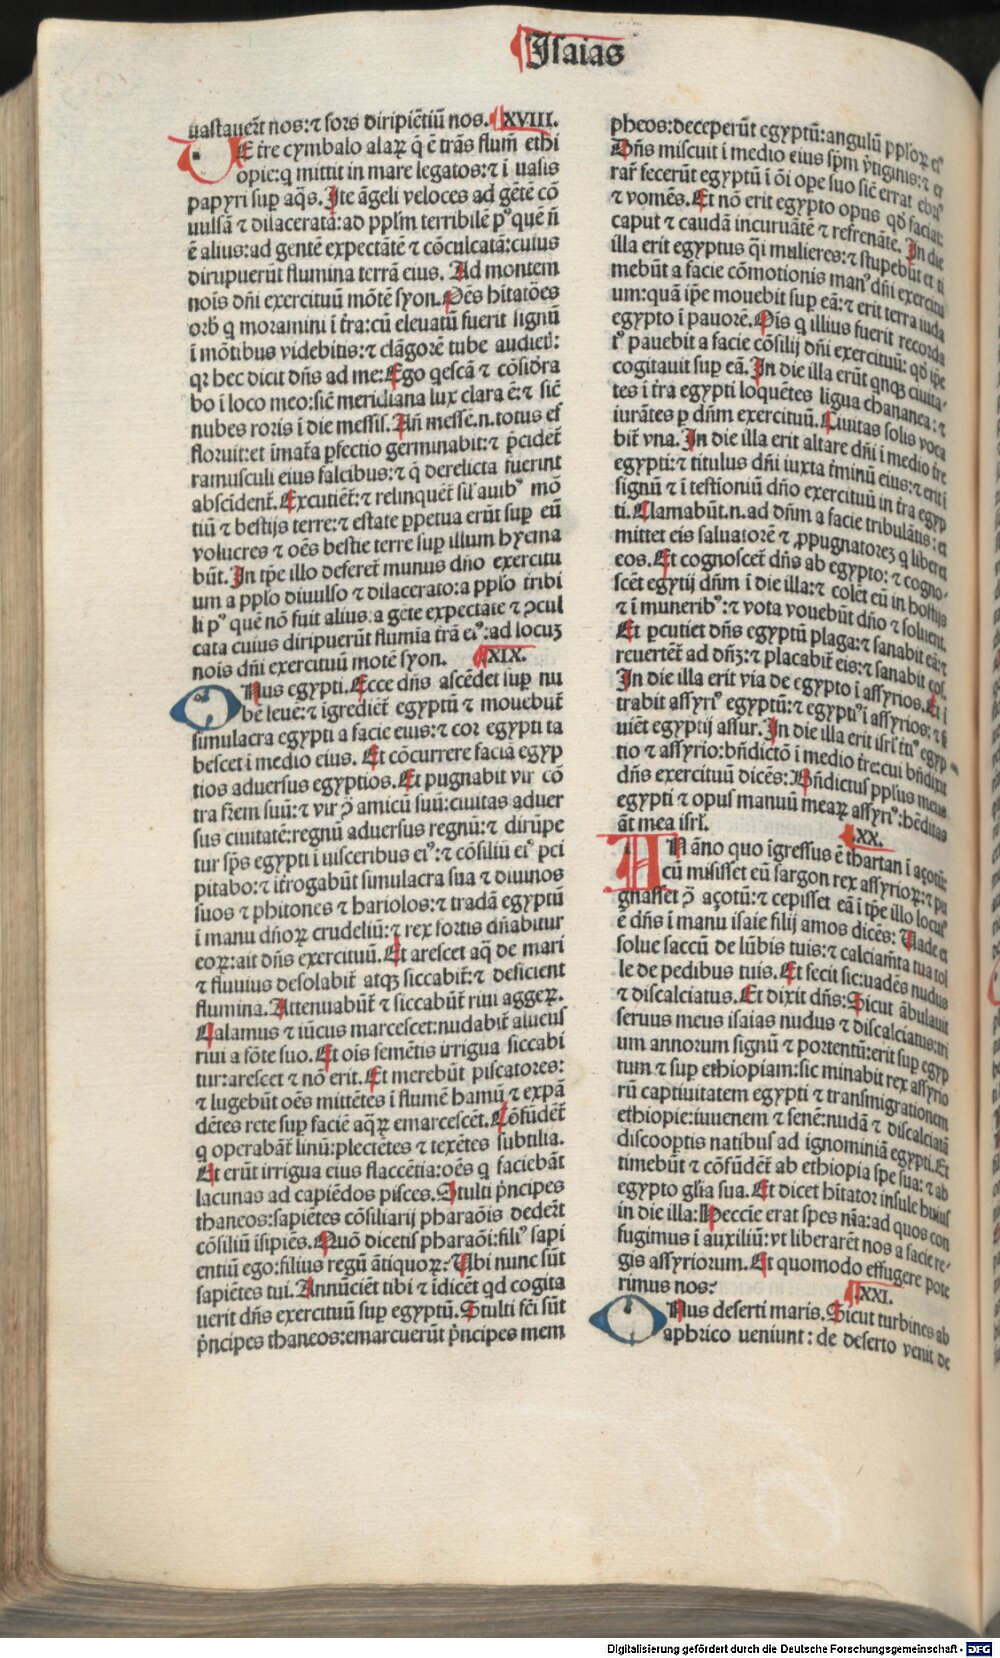 Isaias
uastauer̄t nos:⁊ sors diripiētiū nos. XVIII.
UE t̄re cymbalo alaꝝ q̄ ē trās flum̄ ethi
opie:q mittit in mare legatos:⁊ ī uasis
papyri sup aq̄s. Ite āgeli veloces ad gētē cō
uulsā ⁊ dilaceratā:ad pplm̄ terribilē pꝰ quē n̄
ē alius:ad gentē expectātē ⁊ cōculcatā:cuius
dirupuerūt flumina terrā eius. Ad montem
nois dn̄i exercituū mōtē syon. Oēs hītatōes
orb̄ q moramini ī t̄ra:cū eleuatū fuerit signū
ī mōtibus videbitis:⁊ clāgorē tube audiet̄:
qꝛ hec dicit dn̄s ad me:Ego qescā ⁊ cōsid̄ra
bo ī loco meo:sic̄ meridiana lux clara ē:⁊ sic̄
nubes roris ī die messis. An̄ messē.n.totus ef
floruit:et īmat̄a ꝑfectio germinabit:⁊ p̄cidet̄
ramusculi eius falcibus:⁊ q̄ derelicta fuerint
abscīdent̄. Excutiēt̄:⁊ relinquēt̄ sil̄ auibꝰ mō
tiū ⁊ bestijs terre:⁊ estate ꝑpetua erūt suꝑ eū
volucres ⁊ oēs bestie terre suꝑ illum hyema
būt. In tp̄e illo deferet̄ munus dn̄o exercitu
um a pplo diuulso ⁊ dilacerato:a pplo tribi
li pꝰ quē nō fuit alius:a gēte expectāte ⁊ ↄcul
cata cuius diripuerūt flumia t̄rā eiꝰ:ad locuꝫ
nois dn̄i exercituū motē syon. XIX.
ONus egypti. Ecce dn̄s ascēdet suꝑ nu
bē leuē:⁊ īgrediet̄ egyptū ⁊ mouebūt̄
simulacra egypti a facie eius:⁊ cor egypti ta
bescet ī medio eius. Et cōcurrere faciā egyp
tios aduersus egyptios. Et pugnabit vir cō
tra fr̄em suū:⁊ vir ↄ̄ amicū suū:ciuitas aduer
sus ciuitatē:regnū aduersus regnū:⁊ dirūpe
tur sp̄s egypti ī uisceribus eiꝰ:⁊ cōsiliū eiꝰ p̄ci
pitabo:⁊ īt̄rogabūt simulacra sua ⁊ diuinos
suos ⁊ phitones ⁊ hariolos:⁊ tradā egyptū
ī manu dn̄oꝝ crudeliū:⁊ rex fortis dn̄abitur
eoꝝ:ait dn̄s exercituū. Et arescet aq̄ de mari
⁊ fluuius desolabit̄ atqꝫ siccabit̄:⁊ deficient
flumina. Attenuabūt̄ ⁊ siccabūt̄ riui aggeꝝ.
Calamus ⁊ iūcus marcescet:nudabit̄ alueus
riui a fōte suo. Et ois semētis irrigua siccabi
tur:arescet ⁊ nō erit. Et merebūt piscatores:
⁊ lugebūt oēs mittētes ī flumē hamū ⁊ expā
dētes rete suꝑ faciē aq̄ꝝ emarcescēt. Cōfūdēt̄
q operabāt̄ linū:plectētes ⁊ texētes subtilia.
Et erūt irrigua eius flaccētia:oēs q faciebāt
lacunas ad capiēdos pisces. Stulti p̄ncipes
thaneos:sapiētes cōsiliarij pharaōis dedert̄
cōsiliū īsipiēs. Quō dicetis pharaōi:filiꝰ sapi
entiū ego:filius regū ātiquoꝝ? Ubi nunc sūt
sapiētes tui. Annūciēt tibi ⁊ īdicēt qd cogita
uerit dn̄s exercituū suꝑ egyptū. Stulti fc̄i sūt
p̄ncipes thaneos:emarcuerūt p̄ncipes mem
pheos:deceperūt egyptū:angulū pploꝝ eiꝰ
Dn̄s miscuit ī medio eius sp̄m v̄tiginis:⁊ er
rar̄ fecerūt egyptū ī ōi ope suo sic̄ errat ebriꝰ
⁊ vomēs. Et nō erit egypto opus qd̄ faciat:
caput ⁊ caudā incuruātē ⁊ refrenātē. In die
illa erit egyptus q̄i mulieres:⁊ stupebūt et ti
mebūt a facie cōmotionis manꝰ dn̄i exercitu
um:quā ip̄e mouebit suꝑ eā:⁊ erit terra iuda
egypto ī pauorē. Ois q illius fuerit recorda
tꝰ pauebit a facie cōsilij dn̄i exercituū: qd̄ ip̄e
cogitauit suꝑ eā. In die illa erūt qnqꝫ ciuita
tes ī t̄ra egypti loquētes ligua chananea:⁊
iurātes ꝑ dn̄m exercituū. Ciuitas solis voca
bit̄ vna. In die illa erit altare dn̄i ī medio t̄re
egypti:⁊ titulus dn̄i iuxta t̄minū eius:⁊ erit ī
signū ⁊ ī testioniū dn̄o exercituū in t̄ra egyp
ti. Clamabūt.n.ad dn̄m a facie tribulātis:et
mittet eis saluatorē ⁊ ꝓpugnatoreꝫ q liberet
eos. Et cognoscet̄ dn̄s ab egypto:⁊ cogno-
scēt egytij dn̄m ī die illa:⁊ colēt eū in hostijs
⁊ ī muneribꝰ:⁊ vota vouebūt dn̄o ⁊ soluent.
Et ꝑcutiet dn̄s egyptū plaga:⁊ sanabit eā:⁊
reuertēt̄ ad dn̄ꝫ:⁊ placabit̄ eis:⁊ sanabit eos.
In die illa erit via de egypto ī assyrios. Et ī
trabit assyriꝰ egyptū:⁊ egyptiꝰ ī assyrios:⁊ s̄
uiēt egyptij assur. In die illa erit isrl̄ t̄tiꝰ egyp
tio ⁊ assyrio:bn̄dictō ī medio t̄re:cui bn̄dixit
dn̄s exercituū dicēs:Bn̄dictus pplus meus
egypti ⁊ opus manuū meaꝝ assyriꝰ:hēditas
āt mea isrl̄. XX.
IN āno quo īgressus ē thartan ī aҫotū:
cū misisset eū sargon rex assyrioꝝ:⁊ pu
gnasset ↄ̄ açotū:⁊ cepisset eā ī tp̄e illo locutꝰ
ē dn̄s ī manu isaie filij amos dicēs: Uade et
solue saccū de lūbis tuis:⁊ calciam̄ta tua tol
le de pedibus tuis. Et fecit sic:uadēs nudus
⁊ discalciatus. Et dixit dn̄s:Sicut ābulauit
seruus meus isaias nudus ⁊ discalciatus:tri
um annorum signū ⁊ portentū:erit suꝑ egyp
tum ⁊ suꝑ ethiopiam:sic minabit rex assyrio
rū captiuitatem egypti ⁊ transmigrationem
ethiopie:iuuenem ⁊ senē:nudā ⁊ discalciatā
discoopertis natibus ad ignominiā egypti. Et
timebūt ⁊ cōfūdēt̄ ab ethiopia spe sua:⁊ ab
egypto gl̄ia sua. Et dicet hītator insule huius
in die illa:Heccīe erat spes nr̄a:ad quos con
fugimus ī auxiliū:vt liberarēt nos a facie re-
gis assyriorum. Et quomodo effugere pote
rimus nos? XXI.
ONus deserti maris. Sicut turbines ab
aphrico ueniunt: de deserto venit de
Digitalisierung gefördert durch die Deutsche Forschungsgemeinschaft - DFG